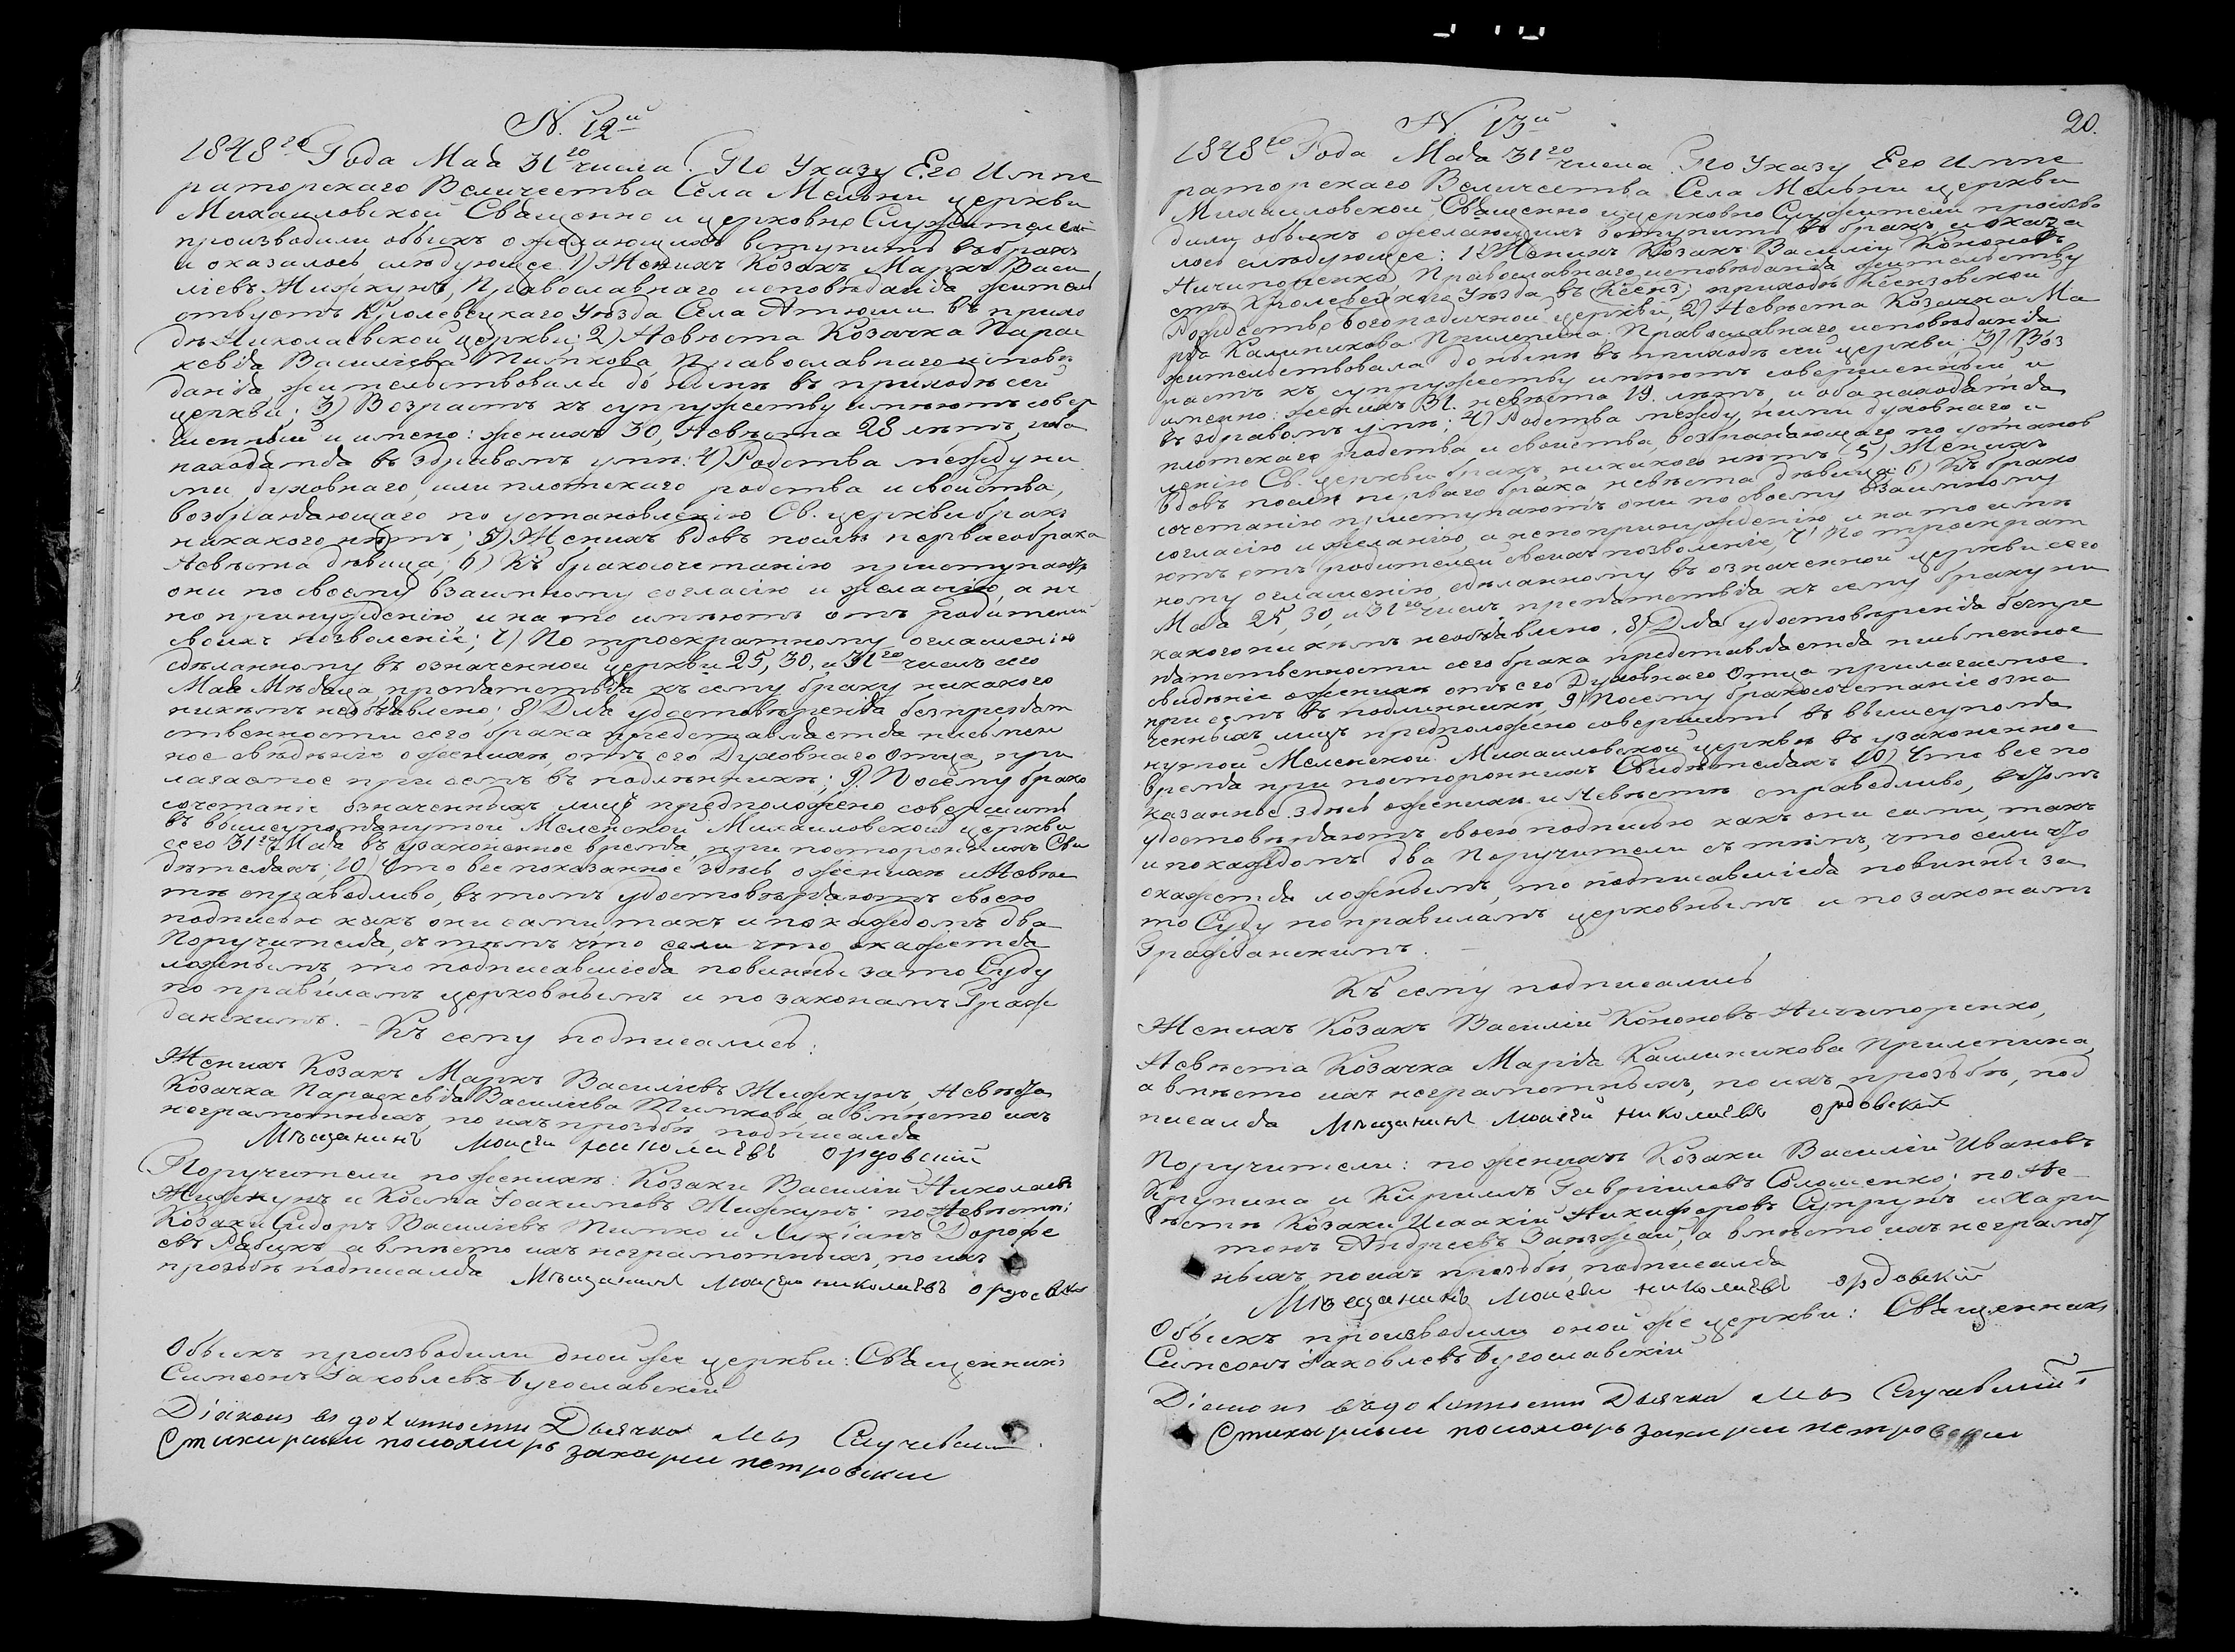 N. 12й
1848го Года Мая 31го числа. По Указу Его Импе
раторскаго Величества Села Мельни церкви
Михаиловской Священно и церковно Служители
производили обыскъ о желающихъ вступить въ бракъ
и оказалось слѣдующее. 1) Женихъ Козакъ Маркъ Васи
ліевъ Жижкунъ, Православнаго исповѣданія жительс
ствуетъ Кролевецкаго Уѣзда Села Атюши въ прихо
дѣ Николаевской церкви; 2) Невѣста Козачка Парас
кевія Василіева Тимкова, Православнаго исповѣ
данія, жительствовала до нынѣ въ приходѣ сей
церкви; 3) Возрастъ къ супружеству имѣютъ совер
шенный и имено: женихъ 30, Невѣста 28 лѣтъ, и оба
находятся въ здравомъ умѣ: 4) Родства между ни
ми, духовнаго, или плотскаго родства и свойства,
возбраняющаго по установленію Св. церкви бракъ
никакого нѣтъ; 5) Женихъ вдовъ послѣ перваго брака
Невѣста дѣвица; 6) Къ бракосочетанію приступаютъ
они по своему взаимному согласію и желанію, а не
по принужденію, и на то имѣютъ отъ родителей
своихъ позволеніе; 7) По троекратному оглашенію
сдѣланному въ означенной церкви 25, 30, и 31го числъ сего
Мая Мѣсяца, препятствія къ сему браку никакого
никѣмъ необъявлено; 8) Для удостовѣренія безпрепят
ственности сего брака представляется письмен
ное свѣдѣніе о женихѣ, отъ его Духовнаго Отца, при
лагаемое при семъ въ подлинникѣ; 9) Посему брако
сочетаніе означенныхъ лицъ предположено совершить
въ вышеупомянутой Меленской Михаиловской церкви
сего 31го Мая въ узаконенное время, при постороннихъ Сви
дѣтеляхъ; 10) Что все показанное здѣсь о женихѣ и Невѣс
тѣ справедливо, въ томъ удостовѣряютъ своею
подписью какъ они сами, такъ и по каждомъ два
Поручителя, съ тѣмъ что если что окажется
ложнымъ, то подписавшіеся повинны за то Суду
по правиламъ церковнымъ и по законамъ Граж
данскимъ. – Къ сему подписались:
Женихъ Козакъ Маркъ Василіевъ Жижкунъ, Невѣста
Козачка Параскевія Василіева Тимкова, а вмѣсто ихъ
неграмотныхъ, по ихъ прозьбѣ подписался
Мѣщанинъ Моисей николаевъ ордовскій
Поручители по женихѣ: Козаки Василій Николаевъ
Жижкунъ и Косма Іоакимовъ Жижкунъ; по Невѣстѣ:
Козаки Сидоръ Василіевъ Тимко и Лукіанъ Дорофе
евъ Рябихъ а вмѣсто ихъ неграмотныхъ, по ихъ
прозьбѣ подписался Мѣщанинъ Моисей николаевъ ордовскій
Обыскъ производили оной же церкви: Священникъ
Симеонъ Іаковлевъ Бугославскій
Діаконъ въ должности Дьячка
Стихарный пономарь захарий петровский
N. 13й
20.
1848го Года Мая 31го числа. По Указу Его Импе
раторскаго Величества Села Мельни церкви
Михаиловской, Священно и церковно Служители произво
дили обыскъ о желающихъ вступить въ бракъ, и оказа
лось слѣдующее: 1) Женихъ Козакъ Василій Кононовъ
Ничипоренко, Православнаго исповѣданія жительству
етъ Кролевецкаго Уѣзда въ приходѣ
Рождество Богородичной церкви, 2) Невѣста Козачка Ма
рія Калиникова Прилепина Православнаго исповѣданія
жительствовала до нынѣ въ приходѣ сей церкви; 3) Воз
растъ къ супружеству имѣютъ совершенный, и
именно: женихъ 31. невѣста 19. лѣтъ, и оба находятся
въ здравомъ умѣ; 4) Родства между ними духовнаго и
плотскаго родства и свойства, возбраняющаго по установ
ленію Св. церкви бракъ, никакого нѣтъ 5) Женихъ
вдовъ послѣ перваго брака невѣста дѣвица 6) Къ брако
сочетанію приступаютъ они по своему взаимному
согласію и желанію, а не по принужденію, и на то имѣ
ютъ отъ родителей своихъ позволеніе, 7) По троекрат
ному оглашенію, сдѣланному въ означенной церкви сего
Мая 25, 30, и 31го числъ, препятствія къ сему браку ни
какого никѣмъ необъявлено. 8) Для удостовѣренія безпре
пятственности сего брака представляется письменное
свѣдѣніе о женихѣ отъ его Духовнаго Отца прилагаемое
при семъ въ подлинникѣ, 9) Посему бракосочетаніе озна
ченныхъ лицъ предположено совершить въ вышеупомя
нутой Меленской Михаиловской церкви въ узаконенное
время при постороннихъ Свидѣтеляхъ 10) Что все по
казанное здѣсь о женихѣ и Невѣстѣ справедливо, въ томъ
удостовѣряютъ своею подписью какъ они сами, такъ
и по каждомъ два Поручители съ тѣмъ, что если что
окажется ложнымъ, то подписавшіеся повинны за
то Суду по правиламъ церковнымъ и по законамъ
Гражданскимъ. –
Къ сему подписались
Женихъ Козакъ Василій Кононовъ Ничипоренко,
Невѣста Козачка Марія Калиникова Прилепина,
а вмѣсто ихъ неграмотныхъ, по ихъ прозьбѣ, под
писался Мѣщанинъ Моисей николаевъ ордовскій
Поручители: по женихѣ Козаки Василій Ивановъ
Крупина и Кирилъ Гавріиловъ Соломенко; по Не-
вѣстѣ Козаки Исаакій Никифоровъ Супрунъ и Хари
тонъ Андреевъ а вмѣсто ихъ неграмот
ныхъ, по ихъ прозьбѣ, подписался
Мѣщанинъ Моисей николаевъ ордовскій
Обыскъ производили оной же церкви: Священникъ
Симеонъ Іаковлевъ Бугославскій
Діаконъ въ должности Дьячка
Стихарный пономарь захарий петровский